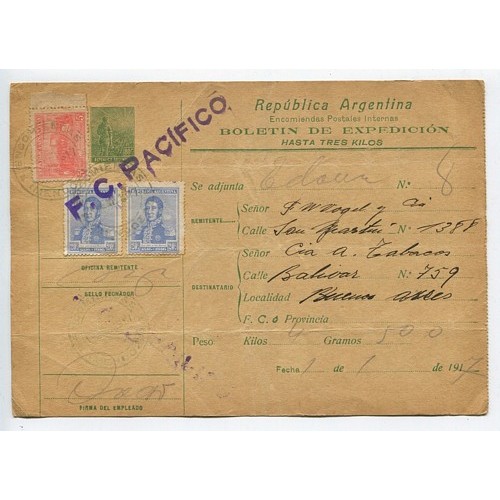 República Argentina
Encomiendas Postales Internas
BOLETIN DE EXPEDICIÓN
HASTA TRES KILOS
F.C. PACÍFICO.
Se adjunta N.º 8
REMITENTE
Señor
Calle San Martin N.º 1388
DESTINATARIO
Señor Cia A. Tabacos
Calle Bolivar N.º 759
Localidad Buenos Aires
F. C. ó Provincia
Peso Kilos 0 Gramos 500
Fecha 1 de 1 1917
OFICINA REMITENTE
SELLO FECHADOR
FIRMA DEL EMPLEADO